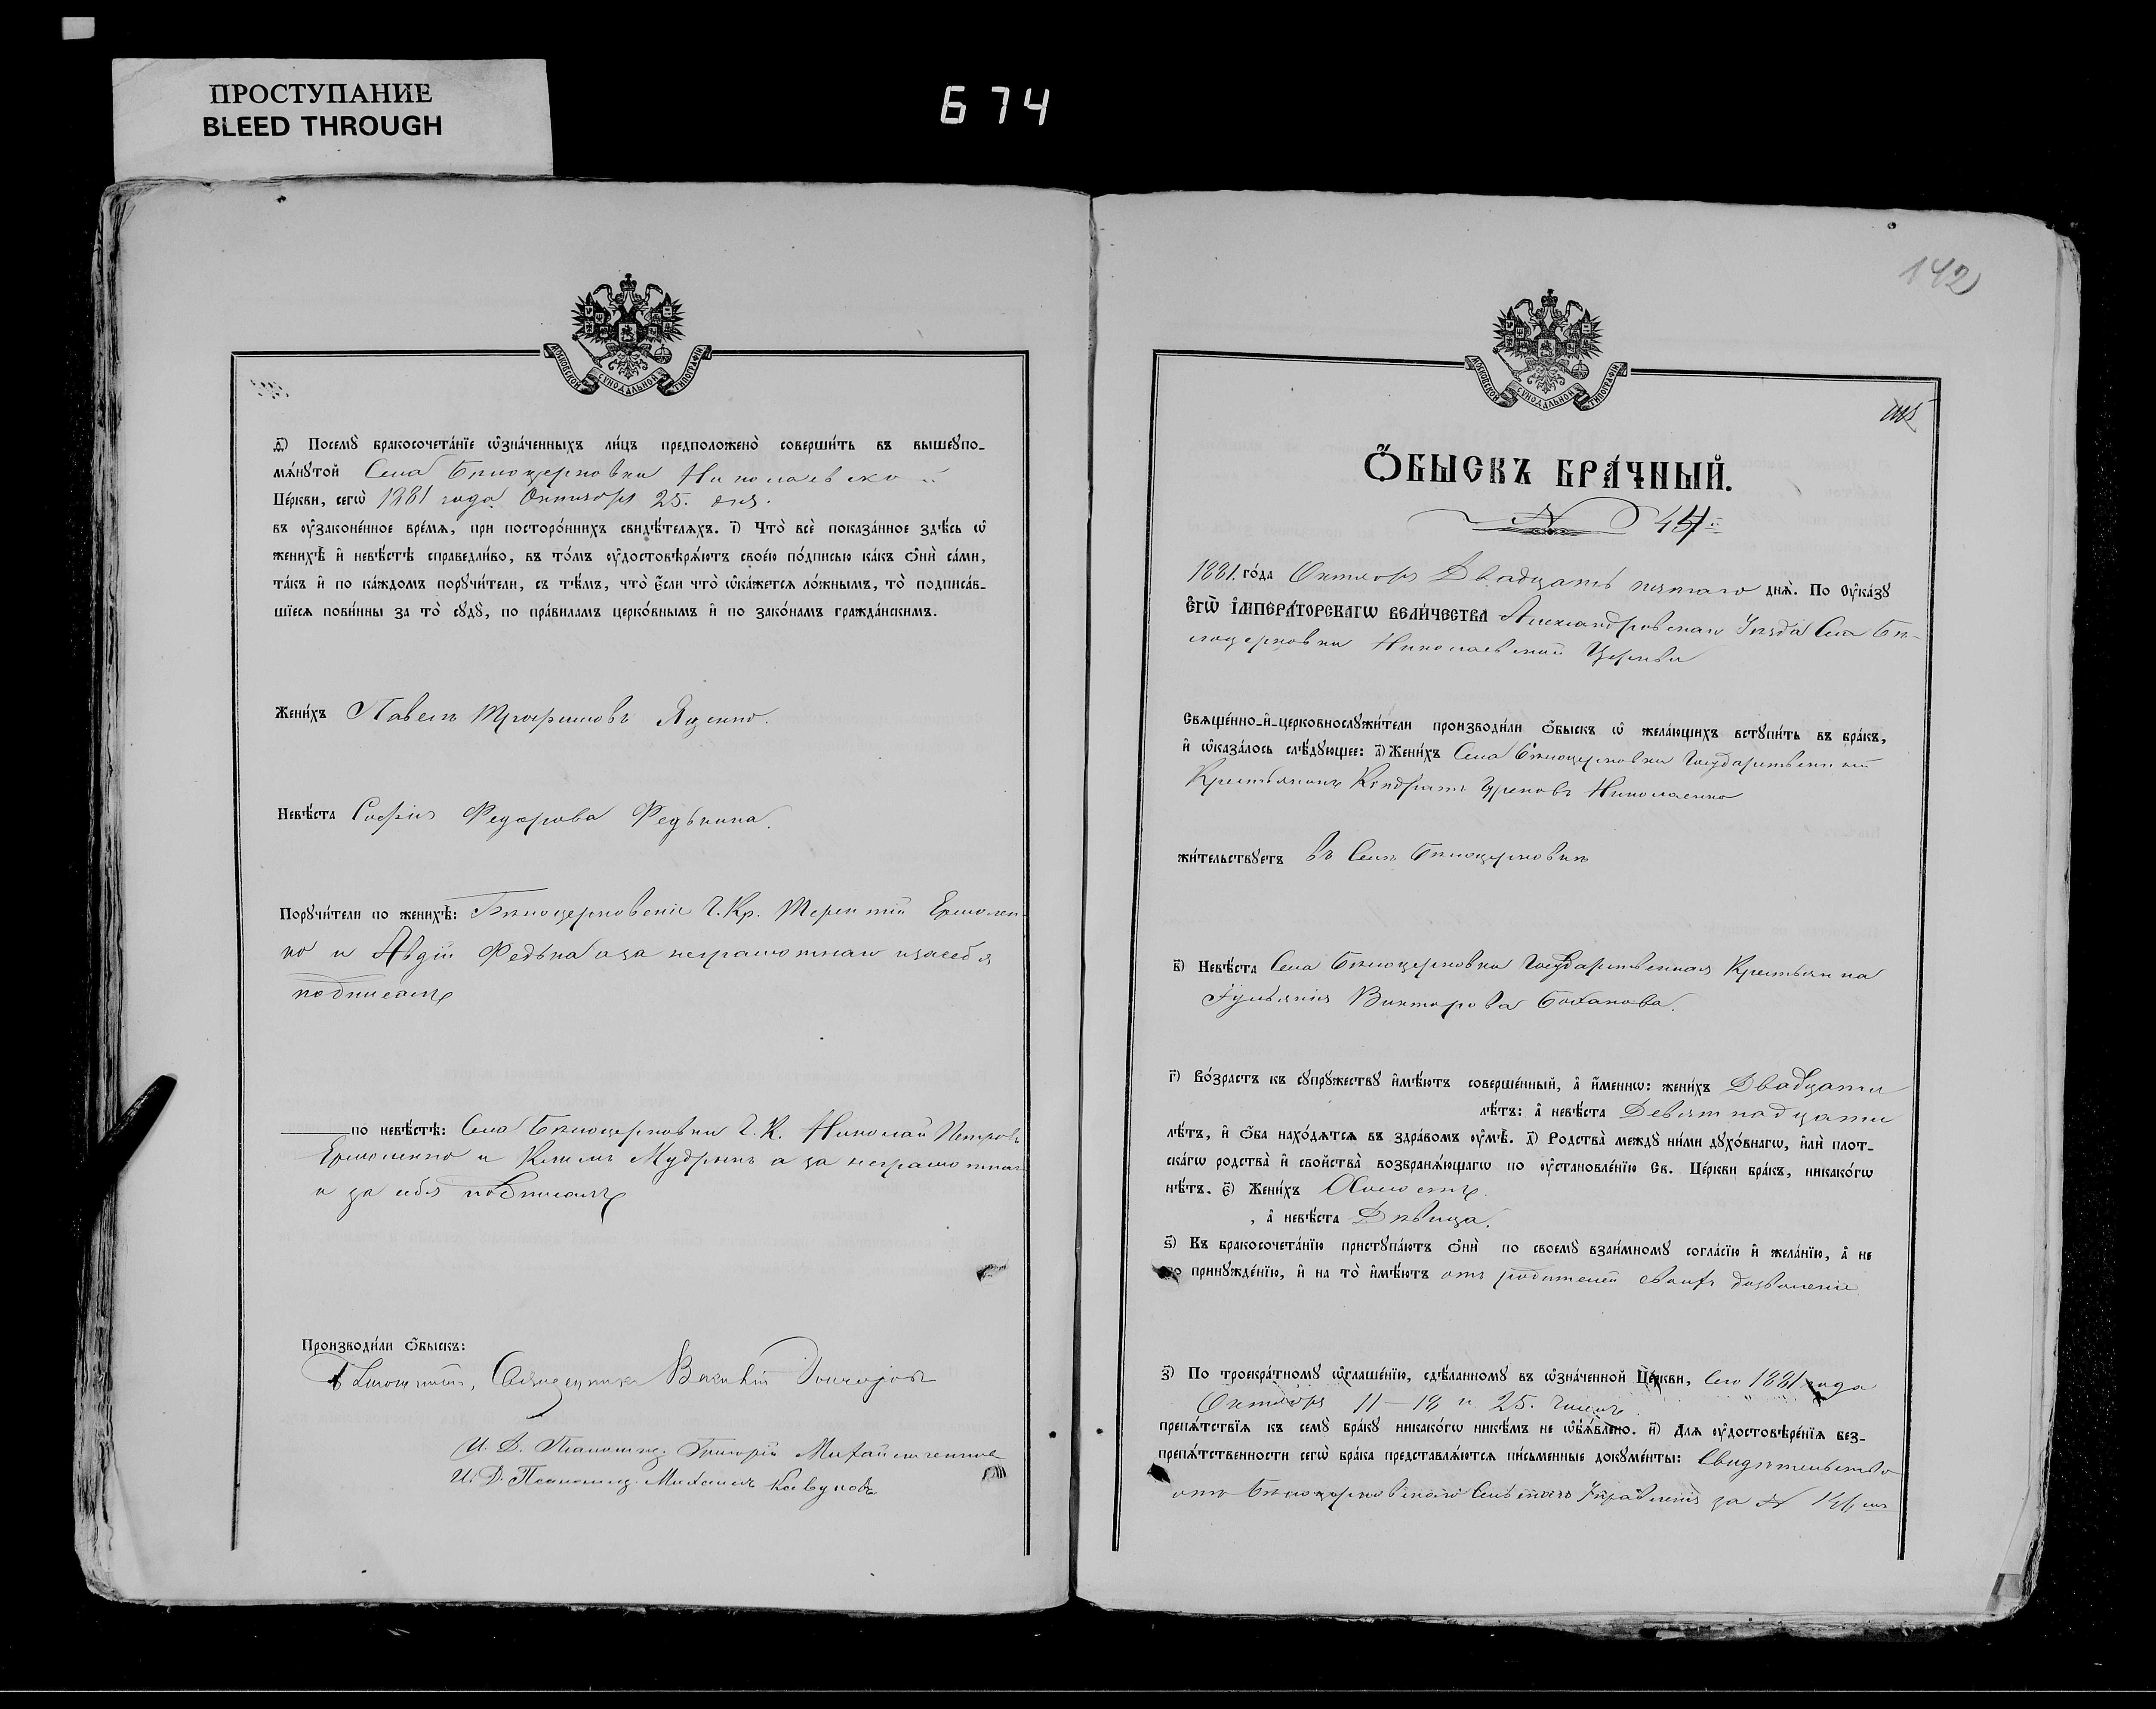 ПРОСТУПАНИЕ
BLEED THROUGH
674
МОСКОВСКОЙ СѴНОДАЛЬНОЙ ТИПОГРАФІИ
д҃і) Посемꙋ̀ бракосочета́нїе ѡ҆зна́ченныхъ ли́цъ предположено̀ соверши́ть въ вышеꙋпо-
мѧ́нꙋтой Села Бѣлоцерковки Николаевской
Це́ркви, сегѡ̀ 1881 года Октября 25. дня.
въ ᲂу҆законе́нное вре́мѧ, при посторо́ннихъ свидѣ́телѧхъ. і҃) Что̀ всѐ показа́нное здѣ́сь ѡ҆
женихѣ̀ и҆ невѣ́стѣ справедли́во, въ то́мъ ᲂу҆достовѣрѧ́ютъ свое́ю по́дписью ка́къ ѻ҆нѝ са́ми,
та́къ и҆ по ка́ждомъ порꙋчи́тели, съ тѣ́мъ, что̀ є҆́сли что̀ ѡ҆ка́жетсѧ ло́жнымъ, то̀ подписа́в-
шїесѧ пови́нны за то̀ сꙋдꙋ̀, по пра́виламъ церко́внымъ и҆ по зако́намъ гражда́нскимъ.
Жени́хъ Павелъ Трофимовъ Яценко.
Невѣ́ста Софія Федорова Федькина.
Порꙋчи́тели по женихѣ̀: Бѣлоцерковскіе Г. Кр. Терентій Ермолен-
ко и Авдій Федька а за неграмотнаго и за себя
подписалъ
по невѣ́стѣ: Села Бѣлоцерковки Г. К. Николай Петровъ
Ермоленко и Климъ Мудрыкъ а за неграмотнаго
и за себя подписалъ
Производи́ли ѻ҆́быскъ:
Священникъ
И. Д. Псаломщ. Григорій Михайличенко
И. Д. Псаломщ. Михаилъ Кавуновъ
142
МОСКОВСКОЙ СѴНОДАЛЬНОЙ ТИПОГРАФІИ
Ѻ҆́БЫСКЪ БРА́ЧНЫЙ.
N 44й
1881. го́да Октября Двадцать пятаго днѧ̀. По ᲂу҆ка́зꙋ
є҆гѡ̀ і҆мпера́торскагѡ вели́чества Александровскаго Уѣзда Села Бѣ-
лоцерковки Николаевской Церкви
Свѧще́нно-и҆-церковнослꙋжи́тели производи́ли ѻ҆́быскъ ѡ҆ жела́ющихъ встꙋпи́ть въ бра́къ,
и҆ ѡ҆каза́лось слѣ́дꙋющее: а҃) Жени́хъ Села Бѣлоцерковки Государственный
Крестьянинъ Кондратъ Николаенко
жи́тельствꙋетъ въ Селѣ Бѣлоцерковкѣ
в҃) Невѣ́ста Села Бѣлоцерковки Государственная Крестьянка
Іуліянія Викторова Боханова.
г҃) Во́зрастъ къ сꙋпрꙋ́жествꙋ и҆мѣ́ютъ соверше́нный, а҆ и҆́меннѡ: жени́хъ Двадцати
лѣ́тъ: а҆ невѣ́ста Девятнадцати
лѣ́тъ, и҆ ѻ҆́ба нахо́дѧтсѧ въ здра́вомъ ᲂу҆мѣ̀. д҃) Родства̀ междꙋ ни́ми дꙋхо́внагѡ, и҆лѝ плот-
ска́гѡ родства̀ и҆ сво́йства возбранѧ́ющагѡ по ᲂу҆становле́нїю Св. Це́ркви бра́къ, никако́гѡ
нѣ́тъ. є҃) Жени́хъ Холостъ.
, а҆ невѣ́ста Дѣвица.
ѕ҃) Къ бракосочета́нїю пристꙋпа́ютъ ѻ҆нѝ по своемꙋ̀ взаи́мномꙋ согла́сїю и҆ жела́нїю, а҆ не
по принꙋжде́нїю, и҆ на то̀ и҆мѣ́ютъ отъ родителей своихъ дозволеніе
з҃) По троекра́тномꙋ ѡ҆глаше́нїю, сдѣ́ланномꙋ въ ѡ҆зна́ченной Це́ркви, сего 1881 года
Октября 11 – 18 и 25. числъ
препѧ́тствїѧ къ семꙋ̀ бра́кꙋ никако́гѡ никѣ́мъ не ѡ҆б̾ѧ́влено. и҃) Длѧ ᲂу҆достовѣре́нїѧ без-
препѧ́тственности сегѡ̀ бра́ка представлѧ́ютсѧ пи́сьменные докꙋме́нты: Свидѣтельство
отъ Бѣлоцерковскаго Сельскаго Управленія за N